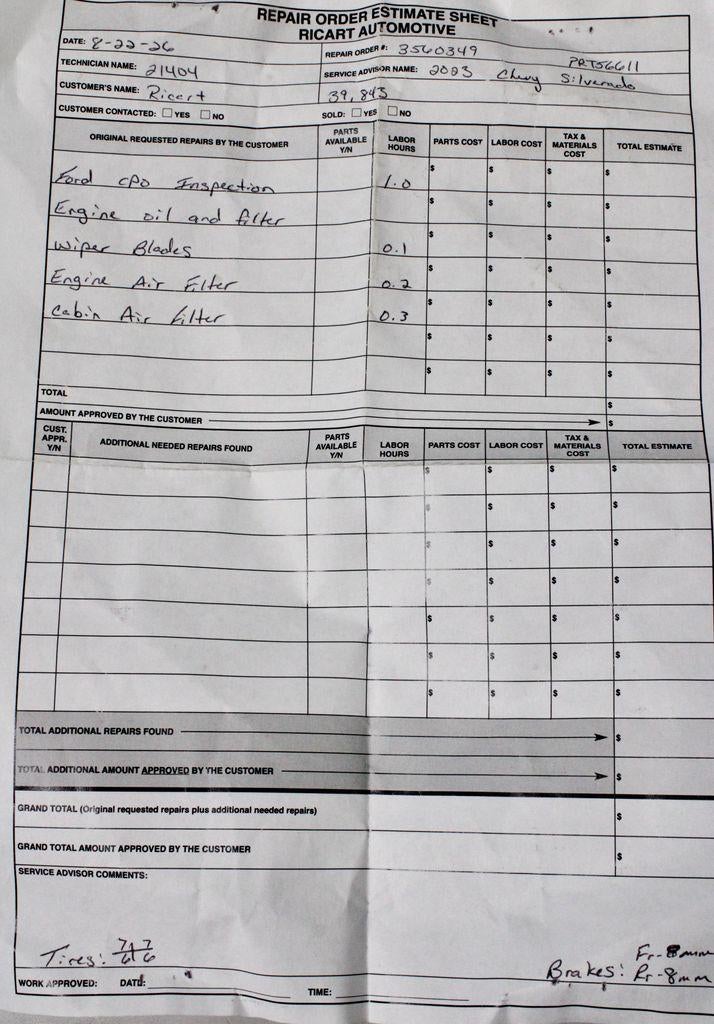 REPAIR ORDER ESTIMATE SHEET
RICART AUTOMOTIVE
DATE: 8-22-26
REPAIR ORDER #: 3560349
PRT56611
TECHNICIAN NAME: 21404
SERVICE ADVISOR NAME: 2023 Chevy Silverado
CUSTOMER'S NAME: Ricart
39,843
CUSTOMER CONTACTED: YES NO
SOLD: YES NO
ORIGINAL REQUESTED REPAIRS BY THE CUSTOMER PARTS AVAILABLE Y/N LABOR HOURS PARTS COST LABOR COST TAX & MATERIALS COST TOTAL ESTIMATE
Ford CPO Inspection 1.0 $ $ $ $
Engine oil and filter $ $ $ $
Wiper Blades 0.1 $ $ $ $
Engine Air Filter 0.2 $ $ $ $
Cabin Air Filter 0.3 $ $ $ $
$ $ $ $
$ $ $ $
TOTAL $
AMOUNT APPROVED BY THE CUSTOMER $
CUST. APPR. Y/N ADDITIONAL NEEDED REPAIRS FOUND PARTS AVAILABLE Y/N LABOR HOURS PARTS COST LABOR COST TAX & MATERIALS COST TOTAL ESTIMATE
$ $ $ $
$ $ $ $
$ $ $ $
$ $ $ $
$ $ $ $
$ $ $ $
$ $ $ $
TOTAL ADDITIONAL REPAIRS FOUND $
TOTAL ADDITIONAL AMOUNT APPROVED BY THE CUSTOMER $
GRAND TOTAL (Original requested repairs plus additional needed repairs) $
GRAND TOTAL AMOUNT APPROVED BY THE CUSTOMER $
SERVICE ADVISOR COMMENTS:
Tires: 7 7
6 6
Brakes: Fr-8mm
Rr-8mm
WORK APPROVED: DATE: TIME: